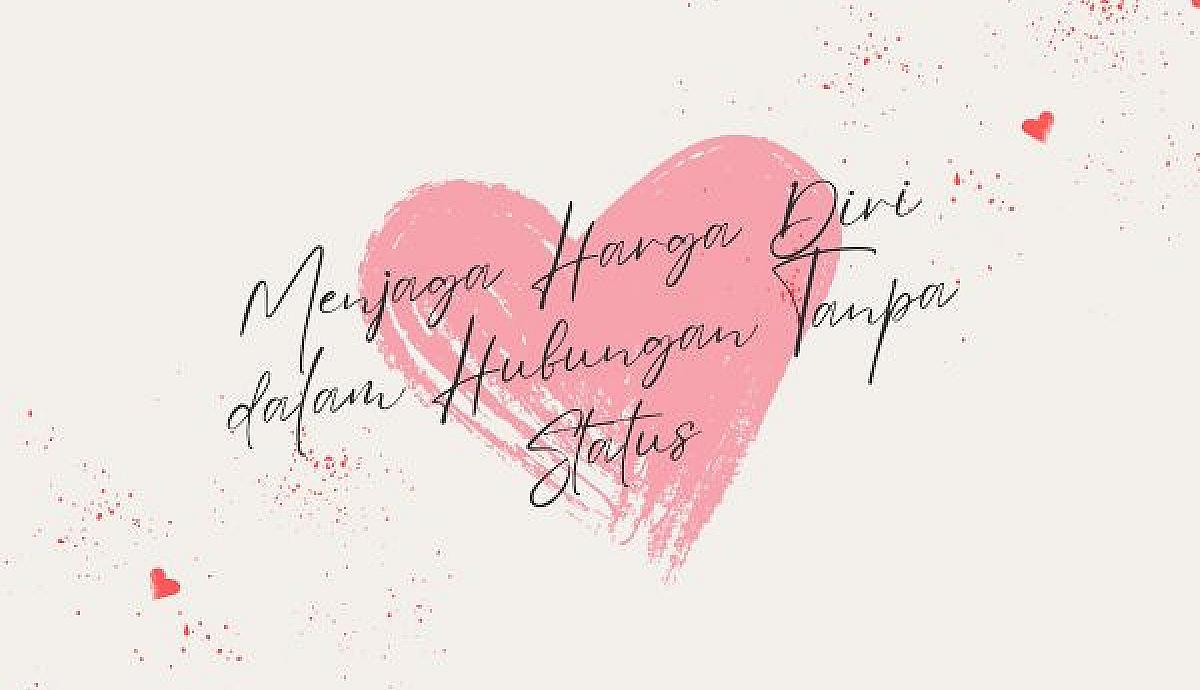 Menjaga Harga Diri
dalam Hubungan Tanpa
Status